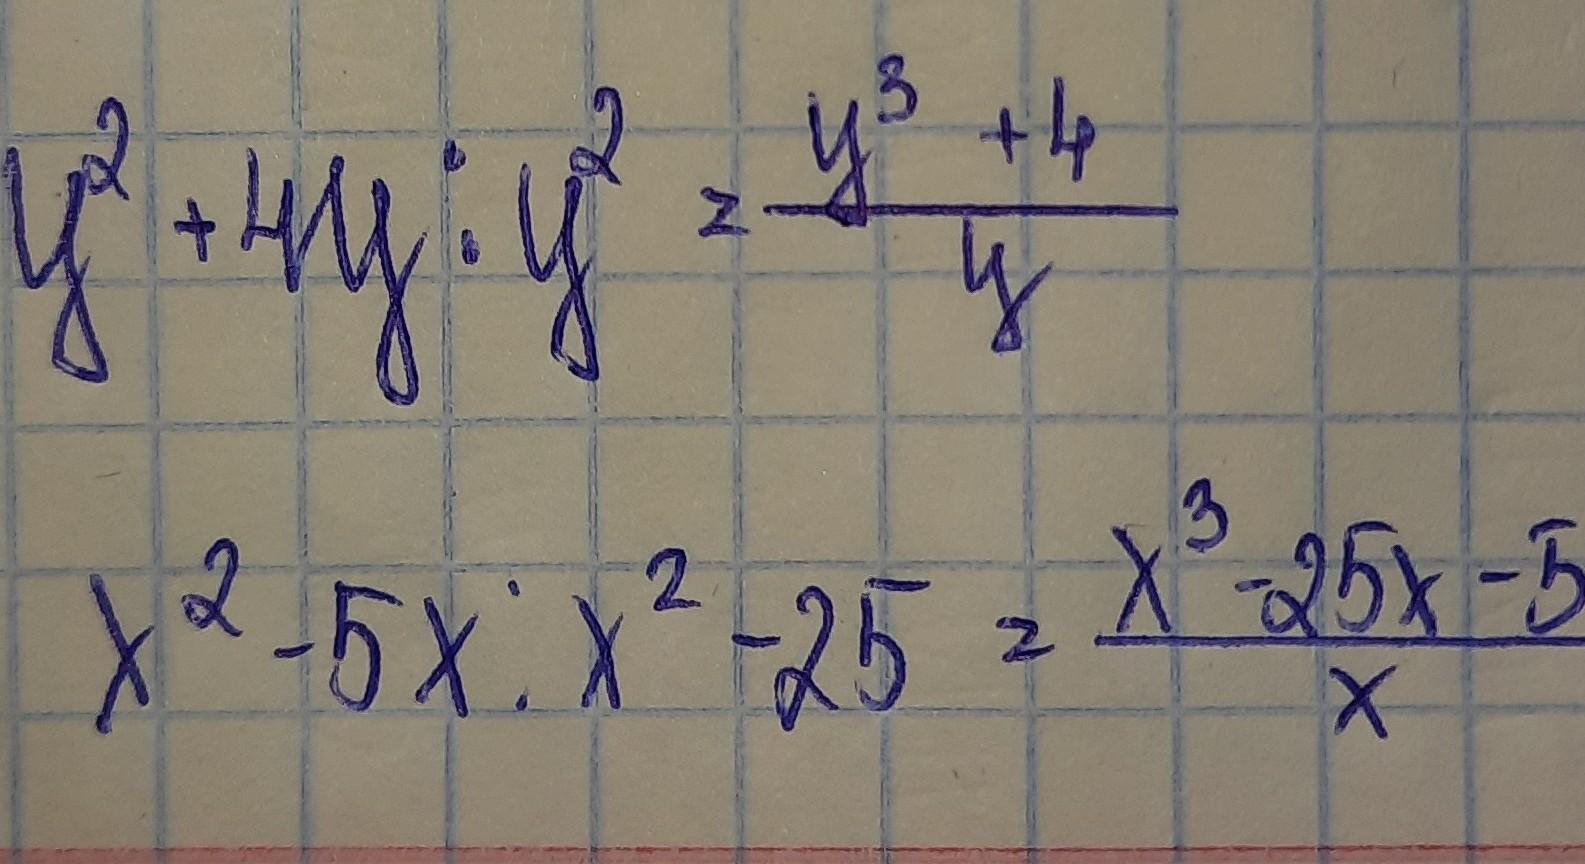 y² + 4y : y² = (y³ + 4)/y
x² - 5x : x² - 25 = (x³ - 25x - 5)/x